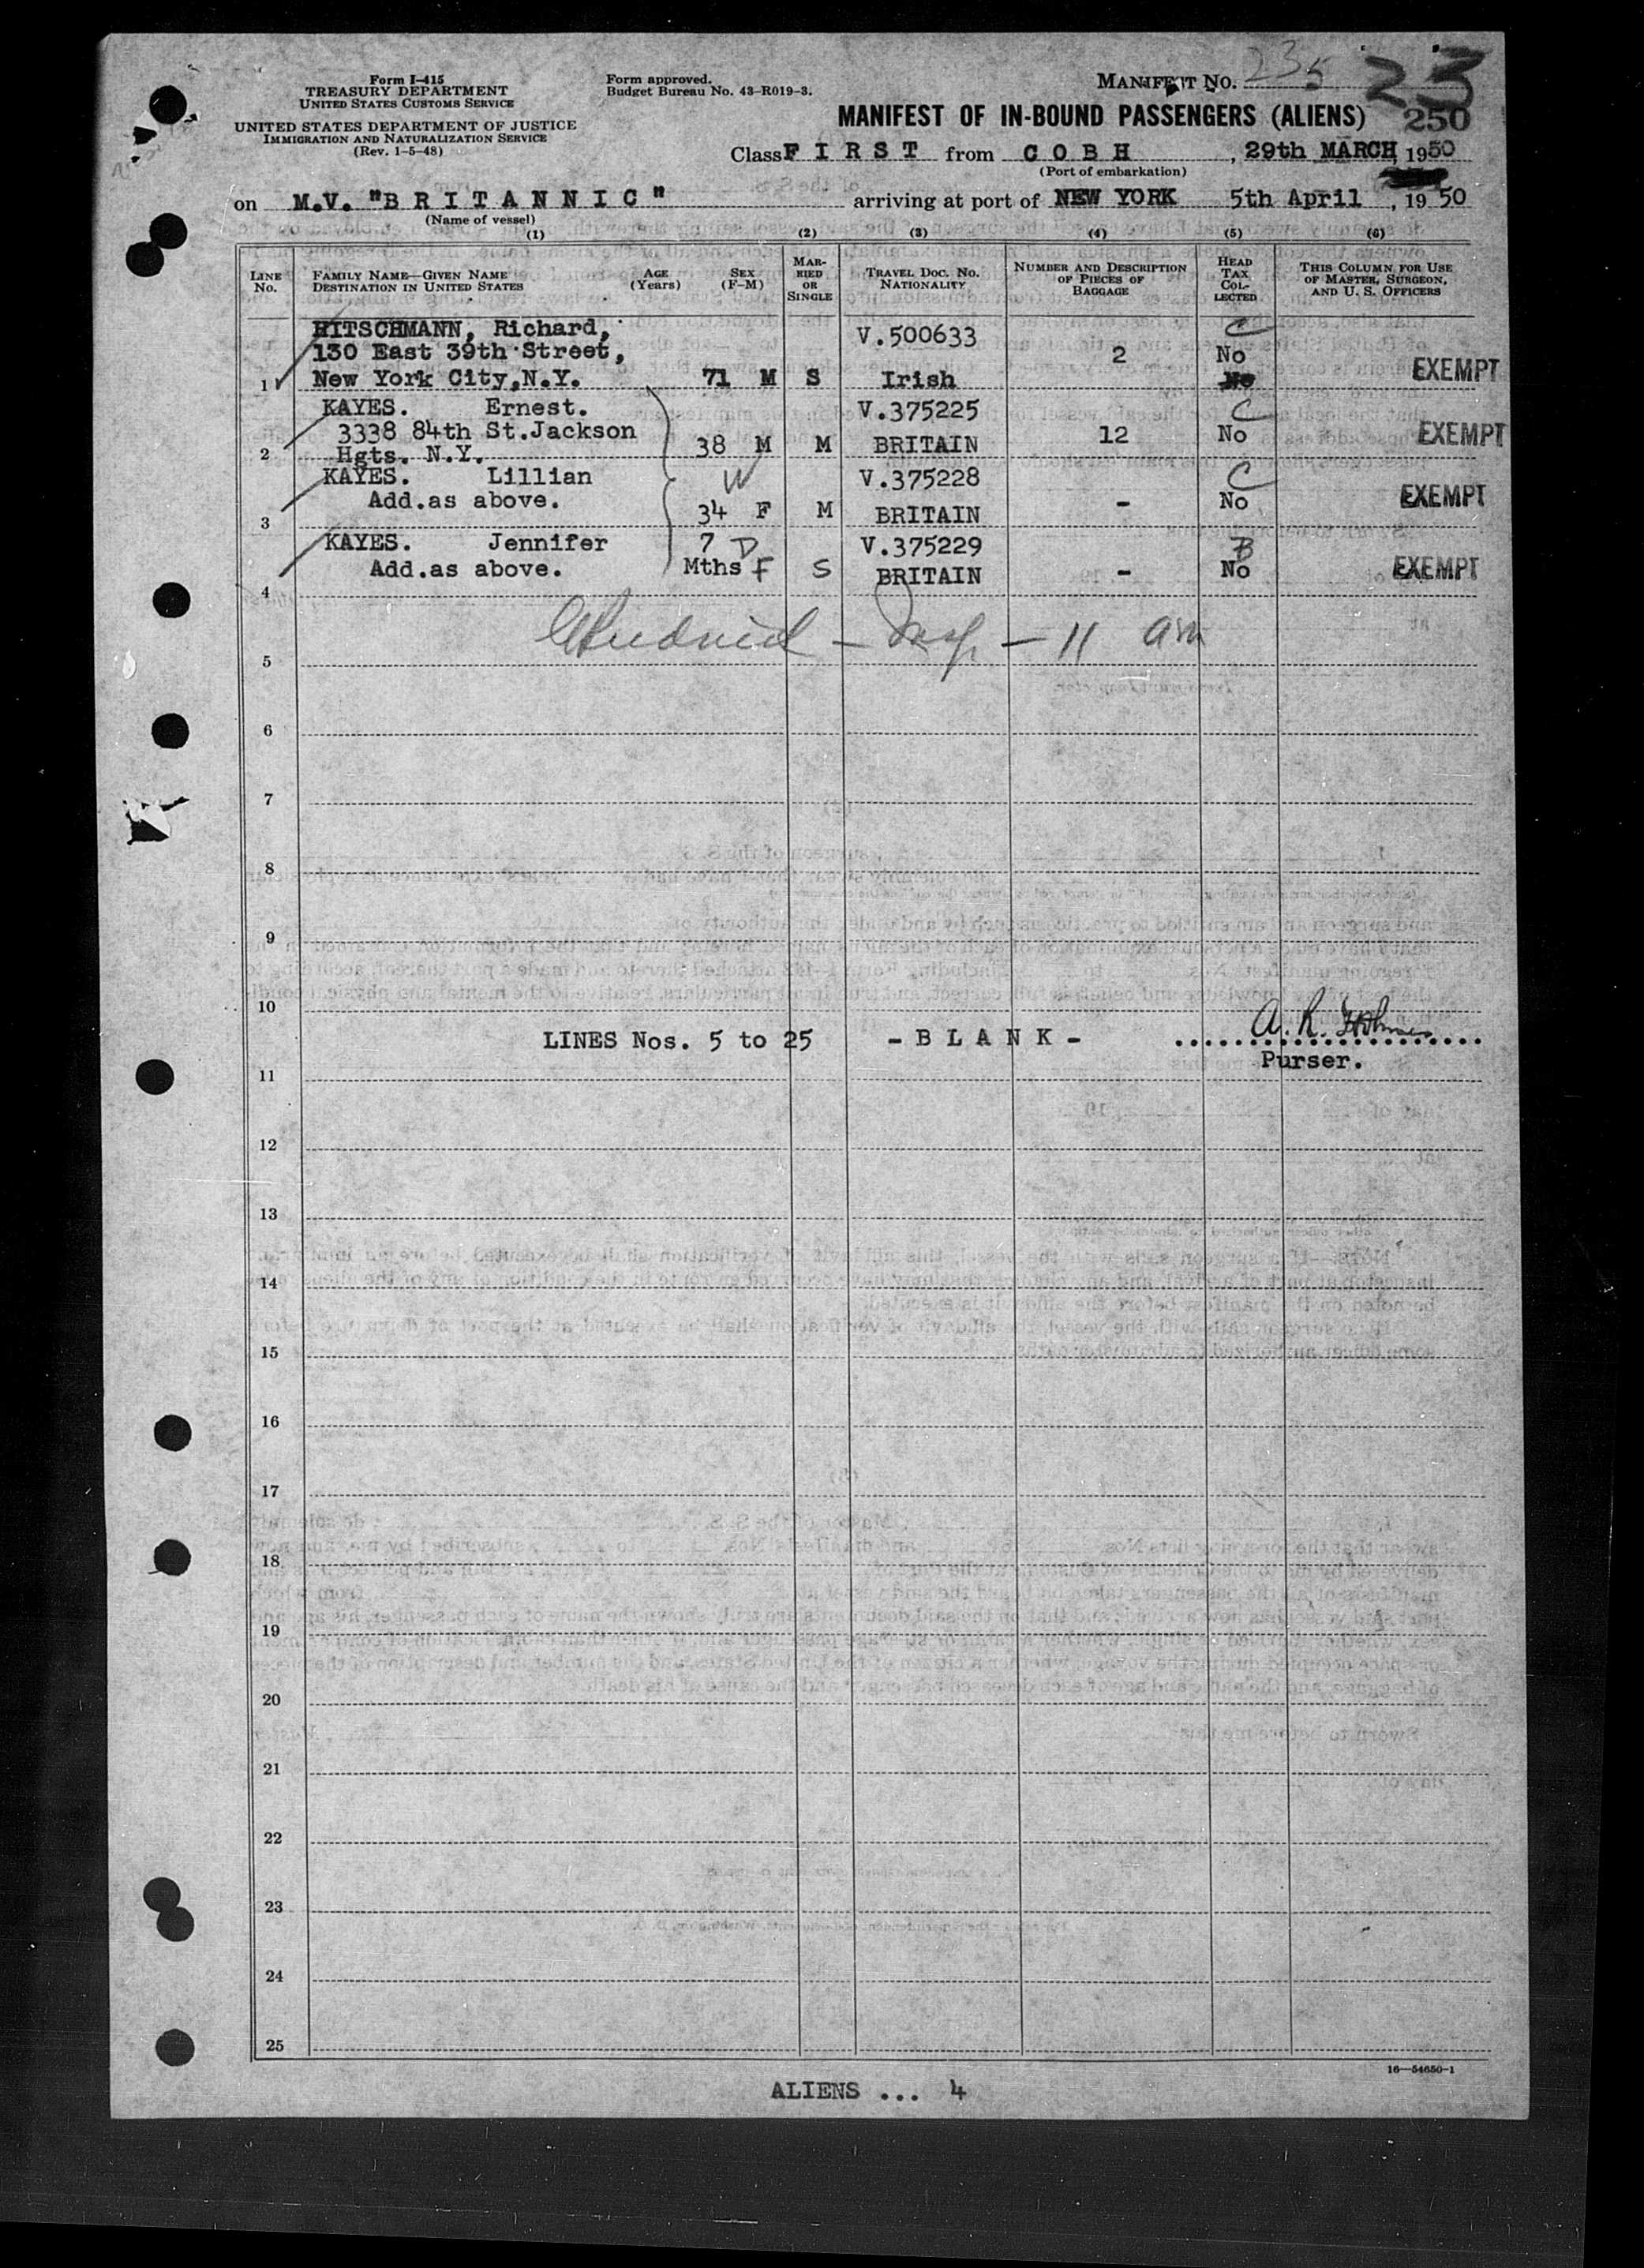 Form I-415
TREASURY DEPARTMENT
UNITED STATES CUSTOMS SERVICE
UNITED STATES DEPARTMENT OF JUSTICE
IMMIGRATION AND NATURALIZATION SERVICE
(Rev. 1-5-48)
Form approved.
Budget Bureau No. 43-R019-3.
MANIFEST NO. 235
23
MANIFEST OF IN-BOUND PASSENGERS (ALIENS) 250
Class FIRST from COBH, 29th MARCH, 1950
(Port of embarkation)
on M.V. "BRITANNIC" arriving at port of NEW YORK 5th April, 1950
(Name of vessel)
(1) (2) (3) (4) (5) (6)
LINE No. FAMILY NAME—GIVEN NAME DESTINATION IN UNITED STATES AGE (Years) SEX (F-M) MARRIED OR SINGLE TRAVEL DOC. No. NATIONALITY NUMBER AND DESCRIPTION OF PIECES OF BAGGAGE HEAD TAX COLLECTED THIS COLUMN FOR USE OF MASTER, SURGEON, AND U. S. OFFICERS
HITSCHMANN, Richard, V.500633 C
130 East 39th Street, 2 No EXEMPT
1 New York City, N.Y. 71 M S Irish No
KAYES. Ernest. V.375225 C
3338 84th St. Jackson 12 No EXEMPT
2 Hgts. N.Y. 38 M M BRITAIN
KAYES. Lillian W V.375228 C
Add.as above. - No EXEMPT
3 34 F M BRITAIN
KAYES. Jennifer 7 D V.375229 B
Add.as above. Mths F S BRITAIN - No EXEMPT
4
- 11 am
5
6
7
8
9
10
LINES Nos. 5 to 25 - BLANK - A. R. Holmes
Purser.
11
12
13
14
15
16
17
18
19
20
21
22
23
24
25
16—54650-1
ALIENS ... 4